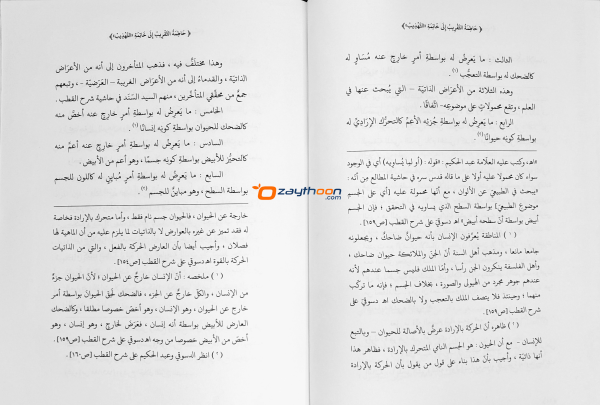 ﴿ خَاطِفَةُ التَّقْرِيبِ إِلَى خَاتِمَةِ «التَّهْذِيبِ» ﴾
الثالث : ما يَعرِضُ له بواسطةِ أمرٍ خارجٍ عنه مُسَاوٍ له
كالضحك له بواسطة التعجُّب (١) .
وهذه الثلاثة من الأعْرَاض الذاتيَّة – التي يُبحث عنها في
العلم ، وتقع محمولاتٍ على موضوعِهِ – اتِّفاقًا .
الرابع : ما يَعرِضُ له بواسطةِ جُزئه الأعمِّ كالتحرُّك الإِرَادِيِّ له
بواسطةِ كونِه حيوانًا (٢) .
=اهـ، وكتب عليه العلَّامة عبد الحكيم : «قوله : (أو لما يُسَاوِيه) أي في الوجود
سواء كان محمولا عليه أولا على ما قاله قدس سره في حاشية المطالع من أنه :
«يبحث في الطبيعيِّ عن الألوان ، مع أنها محمولة عليه (أي على الجسم
موضوعِ الطبيعيِّ) بواسطة السطح الذي يساويه في التحقق ؛ فإن الجسم
أبيض بواسطة أنَّ سطحه أبيض» اهـ دسوقي على شرح القطب [ص١٥٩].
(١) المناطقة يُعرِّفون الإنسان بأنه حيوانٌ ضاحكٌ ، ويجعلونه
جامعا مانعا ، ومذهب أهل السنة أنَّ الجنَّ والملائكة حيوان ضاحك ،
وأهل الفلسفة ينكرون الجن رأسا ، وأمَّا الملك فليس جسما عندهم لأنه
عندهم جوهر مجرد من الهيولى والصورة ، بخلاف الجسم ؛ فإنه ما تركَّب
منهما ؛ وحينئذ فلا يتصف الملك بالتعجب ولا بالضحك اهـ دسوقيّ على
شرح القطب [ص١٥٩].
(٢) ظاهره أنَّ الحركة بالإرادة عرضٌ بالأصالة للحيوان – وبالتبع
للإنسان – مع أن الحيوان : هو الجسم النامي المتحرك بالإرادة ، فظاهر هذا
أنها ذاتيَّة ، وأجيب بأنَّ هذا بناء على قول من يقول بأن الحركة بالإرادة
﴿ خَاطِفَةُ التَّقْرِيبِ إِلَى خَاتِمَةِ «التَّهْذِيبِ» ﴾
وهذا مختلَفٌ فيه ، فذهب المتأخرون إلى أنه من الأعرَاض
الذاتيَّة ، والقدماءُ إلى أنه من الأعرَاض الغريبية – العَرَضيَّة – ، وتبعهم
جمعٌ من محقِّقي المتأخِّرين، منهم السيد السَّنَد في حاشية شرح القطب .
الخامس : ما يَعرِضُ له بواسطةِ أمرٍ خارجٍ عنه أخصَّ منه
كالضحك للحيوان بواسطةِ كونِه إنسانًا (١) .
السادس : ما يَعرِضُ له بواسطةِ أمرٍ خارجٍ عنه أعمَّ منه
كالتحيُّز للأبيض بواسطةِ كونِه جسمًا ، وهو أعم من الأبيض .
السابع : ما يَعرِضُ له بواسطةِ أمرٍ مُبايِنٍ له كاللون للجسم
بواسطة السطح ، وهو مباينٌ للجسم (٢) .
خارجة عن الحيوان ، فالحيوان جسم نام فقط ، وأما متحرك بالإرادة فخاصة
له فقد تميز عن غيره بالعوارض لا بالذاتيات لما يلزم عليه من أن الماهية لها
فصلان ، وأجيب أيضا بأن العارض الحركة بالفعل ، والتي من الذاتيات
الحركة بالقوة اهـ دسوقي على شرح القطب [ص١٥٤].
(١) ملخصه : أنَّ الإنسان خارجٌ عن الحيوان ؛ لأنَّ الحيوان جزءٌ
من الإنسان ، والكلُّ خارجٌ عن الجزء، فالضحك لحق الحيوانَ بواسطة أمر
خارج عن الحيوان ، وهو الإنسان ، وهو أخصّ خصوصا مطلقا ، وكالضحك
العارض للأبيض بواسطة أنه إنسان ، فعَرَضَ لخارج ، وهو إنسان ، وهو
أخصّ من الأبيض خصوصا من وجه اهـ دسوقي على شرح القطب [ص١٥٩].
(٢) انظر الدسوقي وعبد الحكيم على شرح القطب [ص١٦٠].
zaythoon
.com